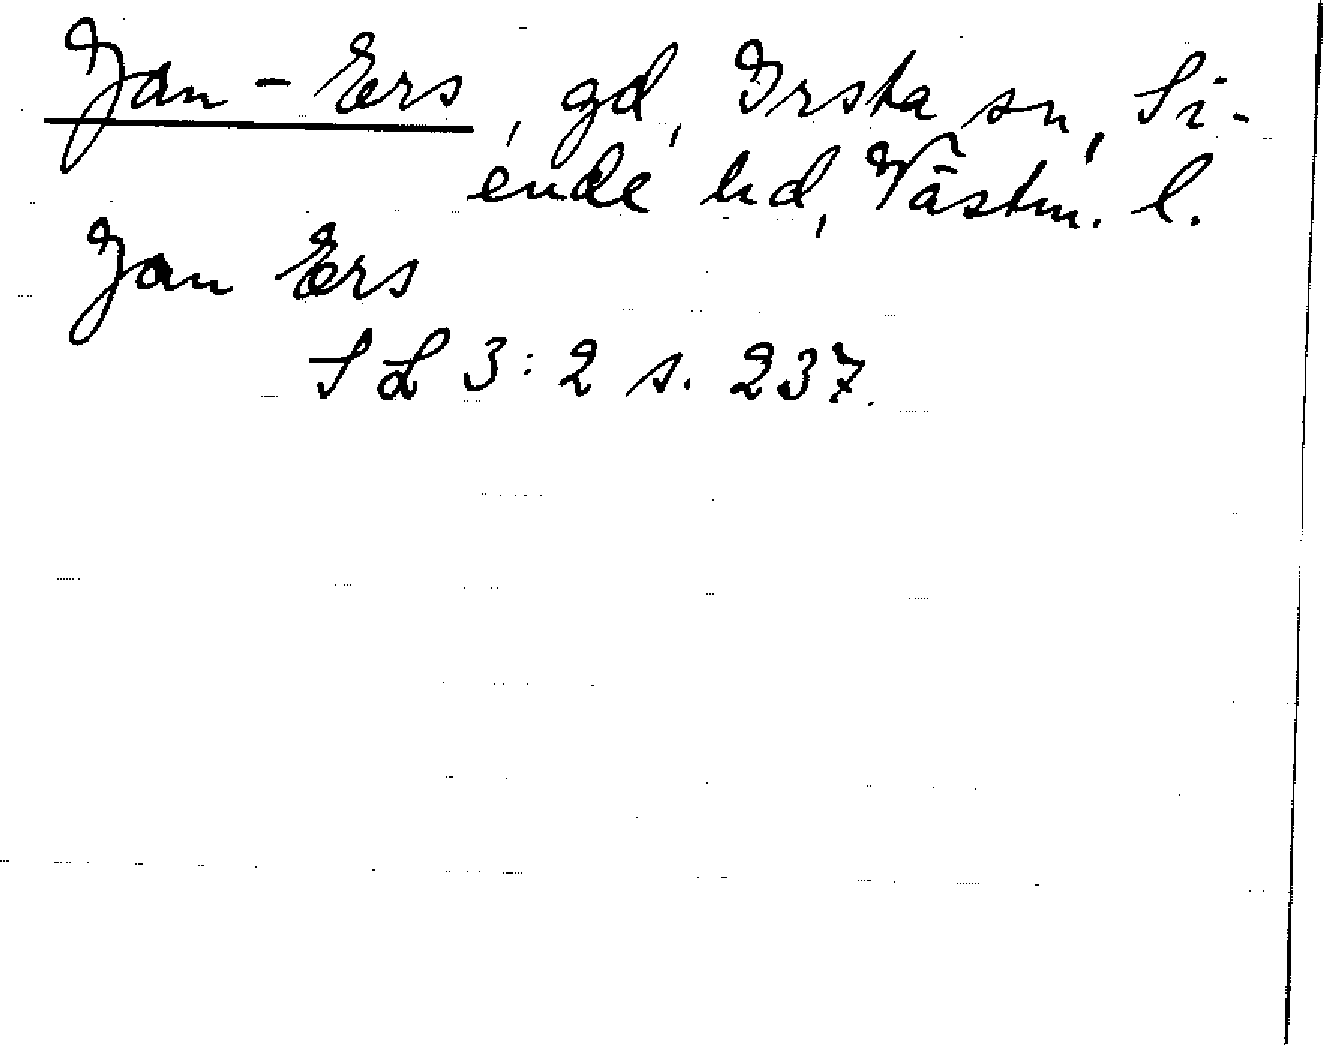 Jan-Ers, gd, Irsta sn, Si-
ende hd, Västm. l.
Jan Ers
SL 3:2 s. 237.